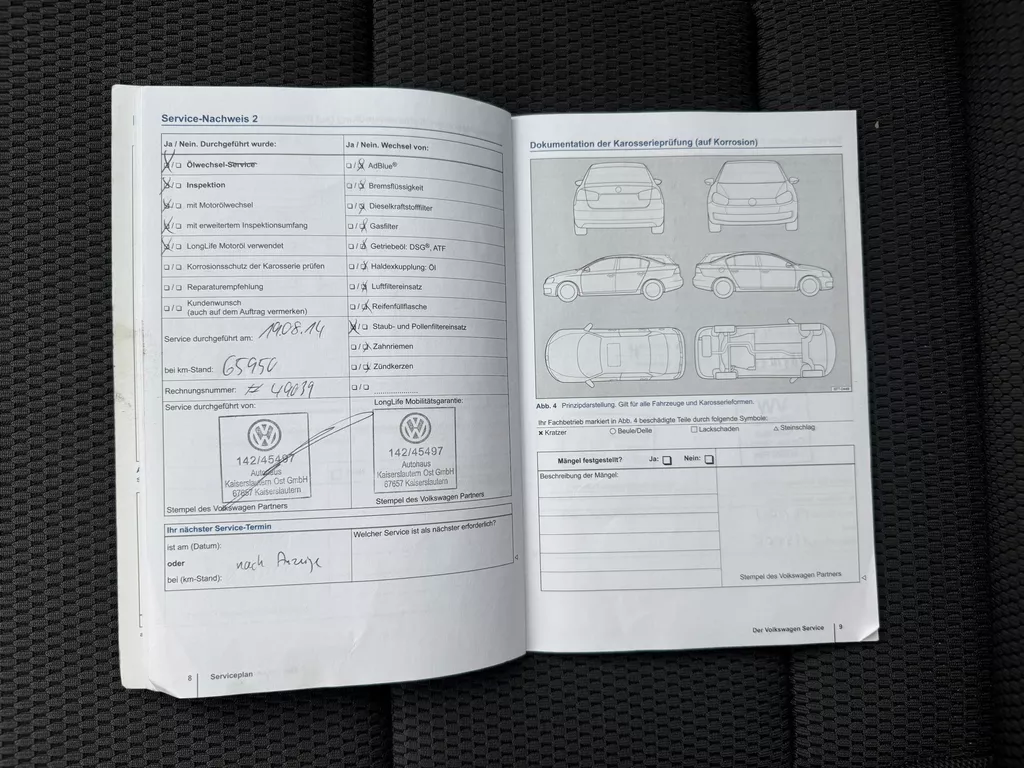 Service-Nachweis 2
Ja / Nein. Durchgeführt wurde:
☒/☐ Ölwechsel-Service
☒/☐ Inspektion
☒/☐ mit Motorölwechsel
☒/☐ mit erweitertem Inspektionsumfang
☒/☐ LongLife Motoröl verwendet
☐/☐ Korrosionsschutz der Karosserie prüfen
☐/☐ Reparaturempfehlung
☐/☐ Kundenwunsch
(auch auf dem Auftrag vermerken)
Service durchgeführt am: 19.08.14
bei km-Stand: 65950
Rechnungsnummer: # 49039
Service durchgeführt von:
142/45497
Autohaus
Kaiserslautern Ost GmbH
67657 Kaiserslautern
Stempel des Volkswagen Partners
Ja / Nein. Wechsel von:
☐/☒ AdBlue®
☐/☒ Bremsflüssigkeit
☐/☒ Dieselkraftstofffilter
☐/☒ Gasfilter
☐/☒ Getriebeöl: DSG®, ATF
☐/☒ Haldexkupplung: Öl
☐/☒ Luftfiltereinsatz
☐/☒ Reifenfüllflasche
☒/☐ Staub- und Pollenfiltereinsatz
☐/☒ Zahnriemen
☐/☒ Zündkerzen
☐/☐ ....................
LongLife Mobilitätsgarantie:
142/45497
Autohaus
Kaiserslautern Ost GmbH
67657 Kaiserslautern
Stempel des Volkswagen Partners
Ihr nächster Service-Termin
ist am (Datum):
oder nach Anzeige
bei (km-Stand):
Welcher Service ist als nächster erforderlich?
8 Serviceplan
Dokumentation der Karosserieprüfung (auf Korrosion)
Abb. 4 Prinzipdarstellung. Gilt für alle Fahrzeuge und Karosserieformen.
Ihr Fachbetrieb markiert in Abb. 4 beschädigte Teile durch folgende Symbole:
✖ Kratzer ○ Beule/Delle ☐ Lackschaden △ Steinschlag
Mängel festgestellt? Ja: ☐ Nein: ☐
Beschreibung der Mängel:
Stempel des Volkswagen Partners
Der Volkswagen Service 9